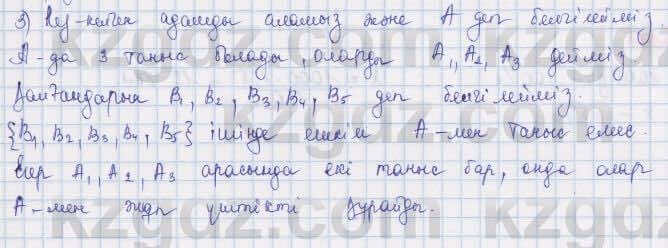 3) Кез-келген адамды аламыз және А деп белгілейміз
А-да 3 таныс болады, оларды А₁, А₂, А₃ дейміз.
Қалғандарын В₁, В₂, В₃, В₄, В₅ деп белгілейміз.
{В₁, В₂, В₃, В₄, В₅} ішінде ешкім А-мен таныс емес.
Егер А₁, А₂, А₃ арасында екі таныс бар, онда олар
А-мен жұп үштікті құрайды.
kzgdz.com